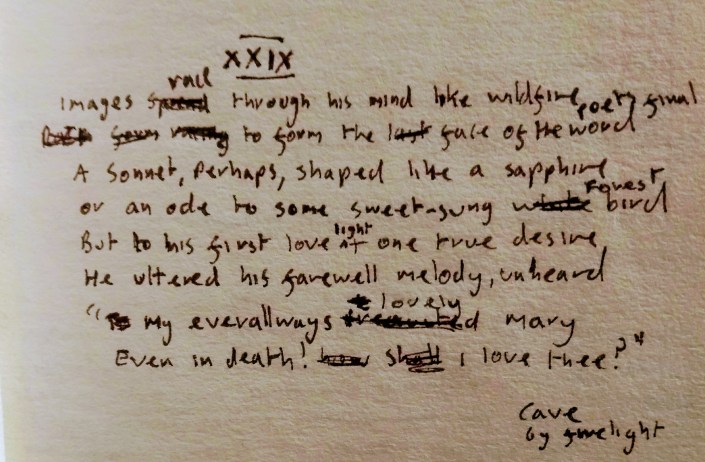 XXIX
Images race through his mind like wildfire
to form the last face of the word poet's final
A Sonnet, perhaps, shaped like a sapphire
or an ode to some sweet-sung forest bird
But to his first love light at one true desire,
He uttered his farewell melody, unheard
"My everallways lovely Mary
Even in death! shall i love thee?"
Cave
by firelight